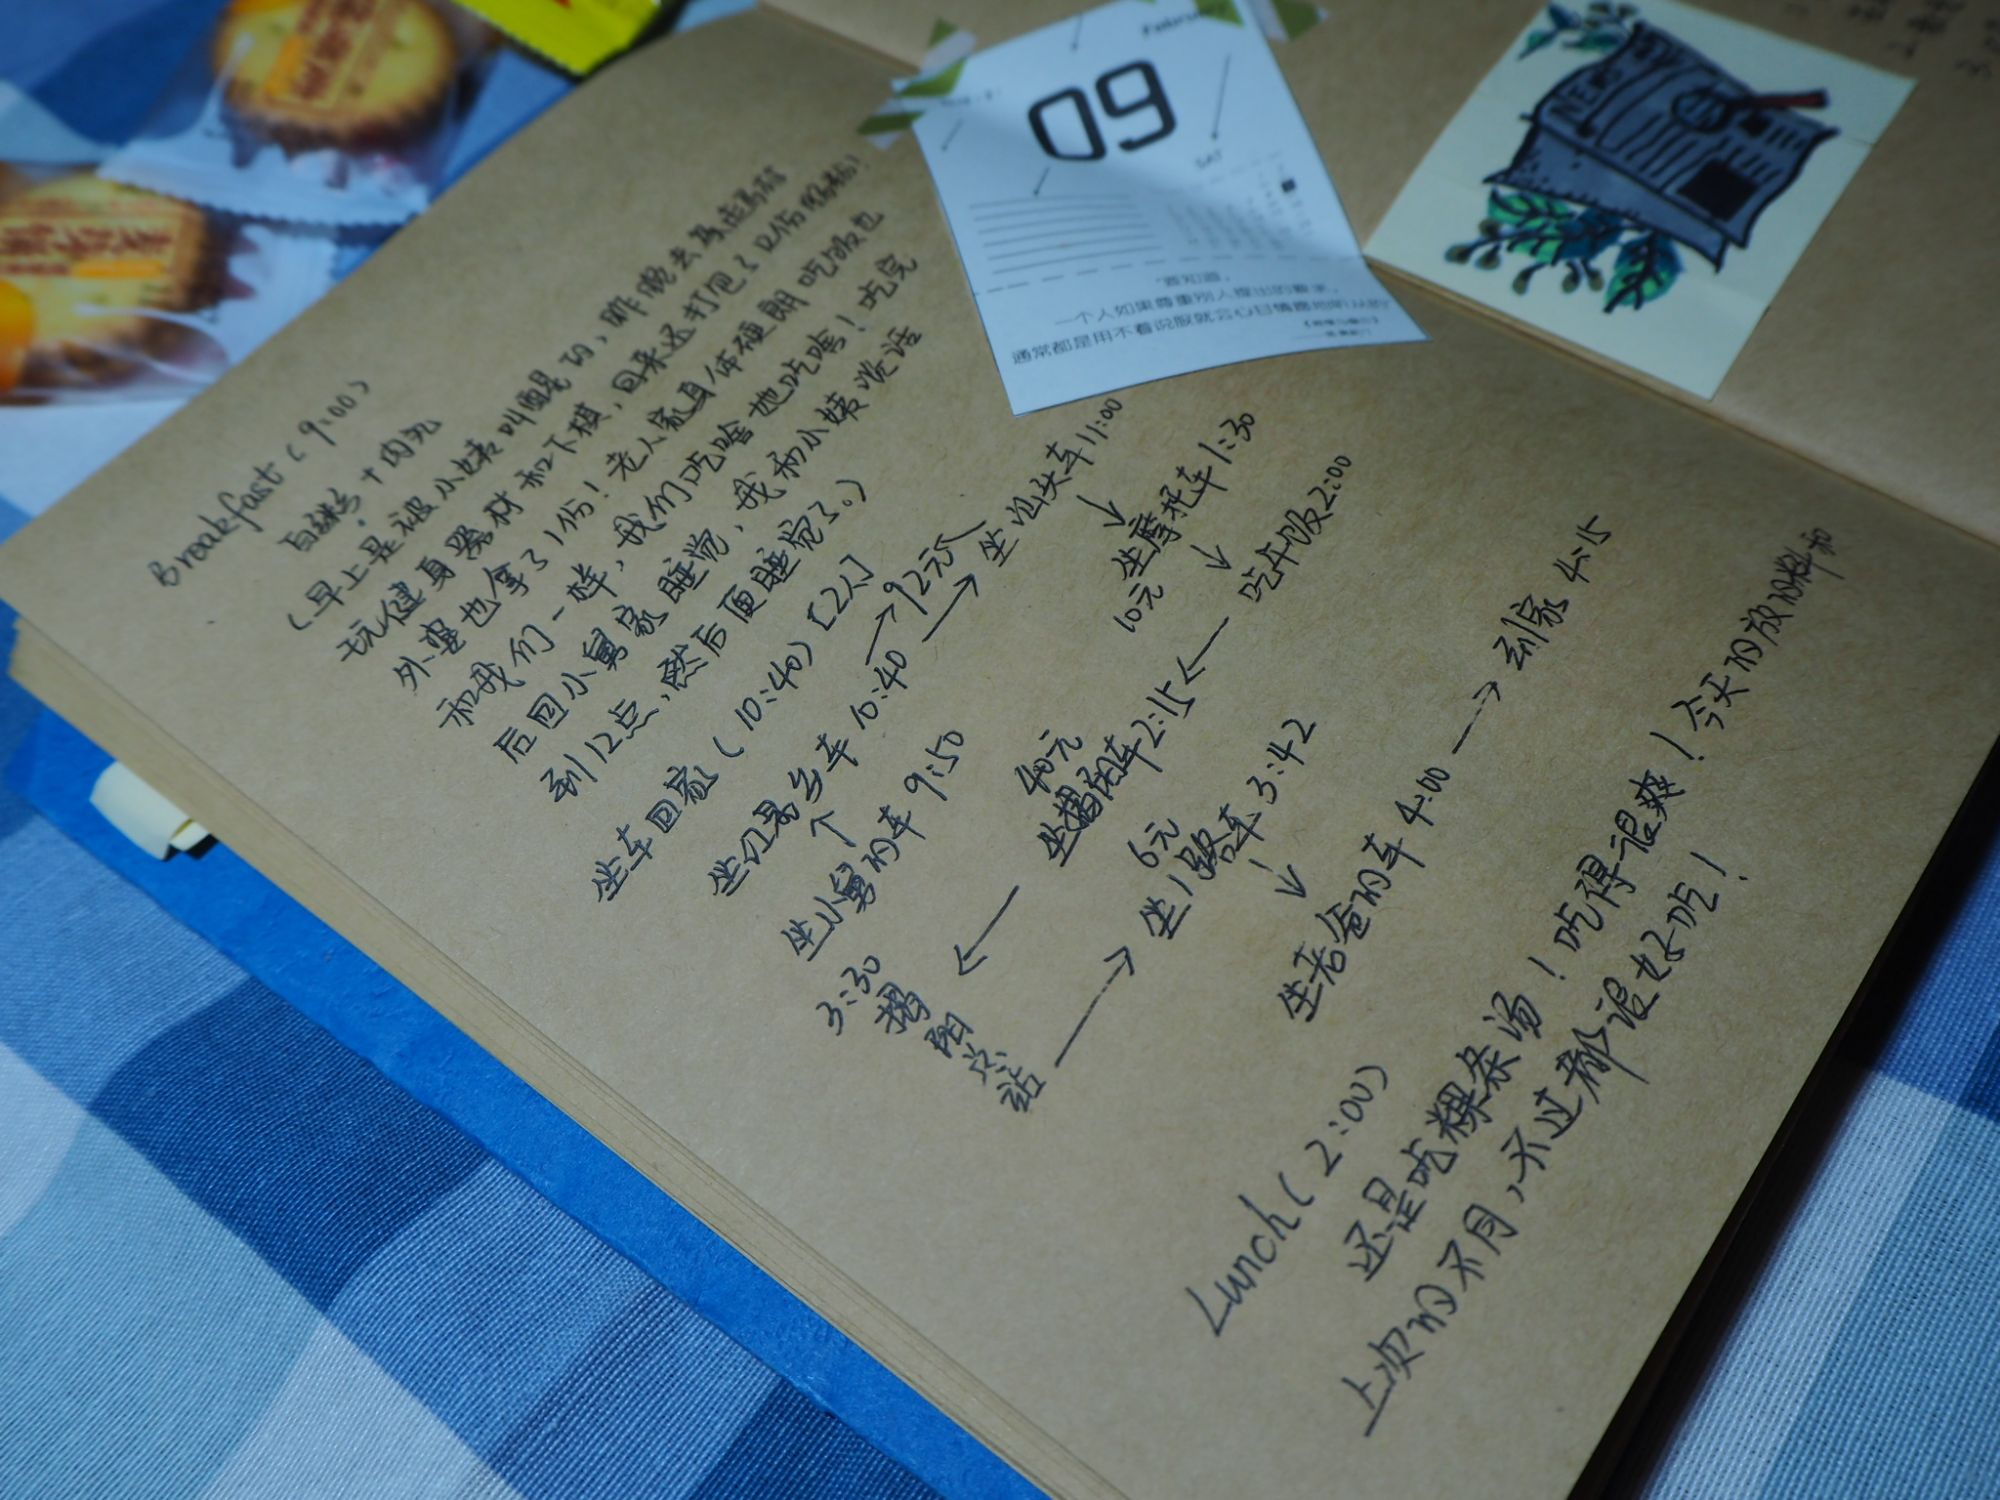 09
SAT
"要知道,
一个人如果尊重别人提出的要求,
通常都是用不着说服就会心甘情愿地听从的"
NEWS
Breakfast (9:00)
白粥 + 肉丸
(早上是被小姨叫醒的, 昨晚去
玩健身器材和下棋, 回来还打包了12份肠粉!
外婆也拿了1份! 老人家身体硬朗 吃饭也
和我们一样, 我们吃啥她吃啥! 吃完
后回小舅家睡觉, 我和小姨谈话
到12点, 然后便睡觉了。)
坐车回家 (10:40) [2人]
→ 92元
坐小舅的车 9:50
↑
10:40 → 坐汕头车 11:00
↓
坐摩托车 1:30
10元 ↓
吃午饭 2:00
←
40元
坐揭阳车 2:15
←
3:30
揭阳总站
→
6元
坐1路车 3:42
↓
坐老爸的车 4:00 → 到家 4:15
Lunch (2:00)
还是吃粿条汤! 吃得很爽! 今天的放的料和
上次的不同, 不过都很好吃!